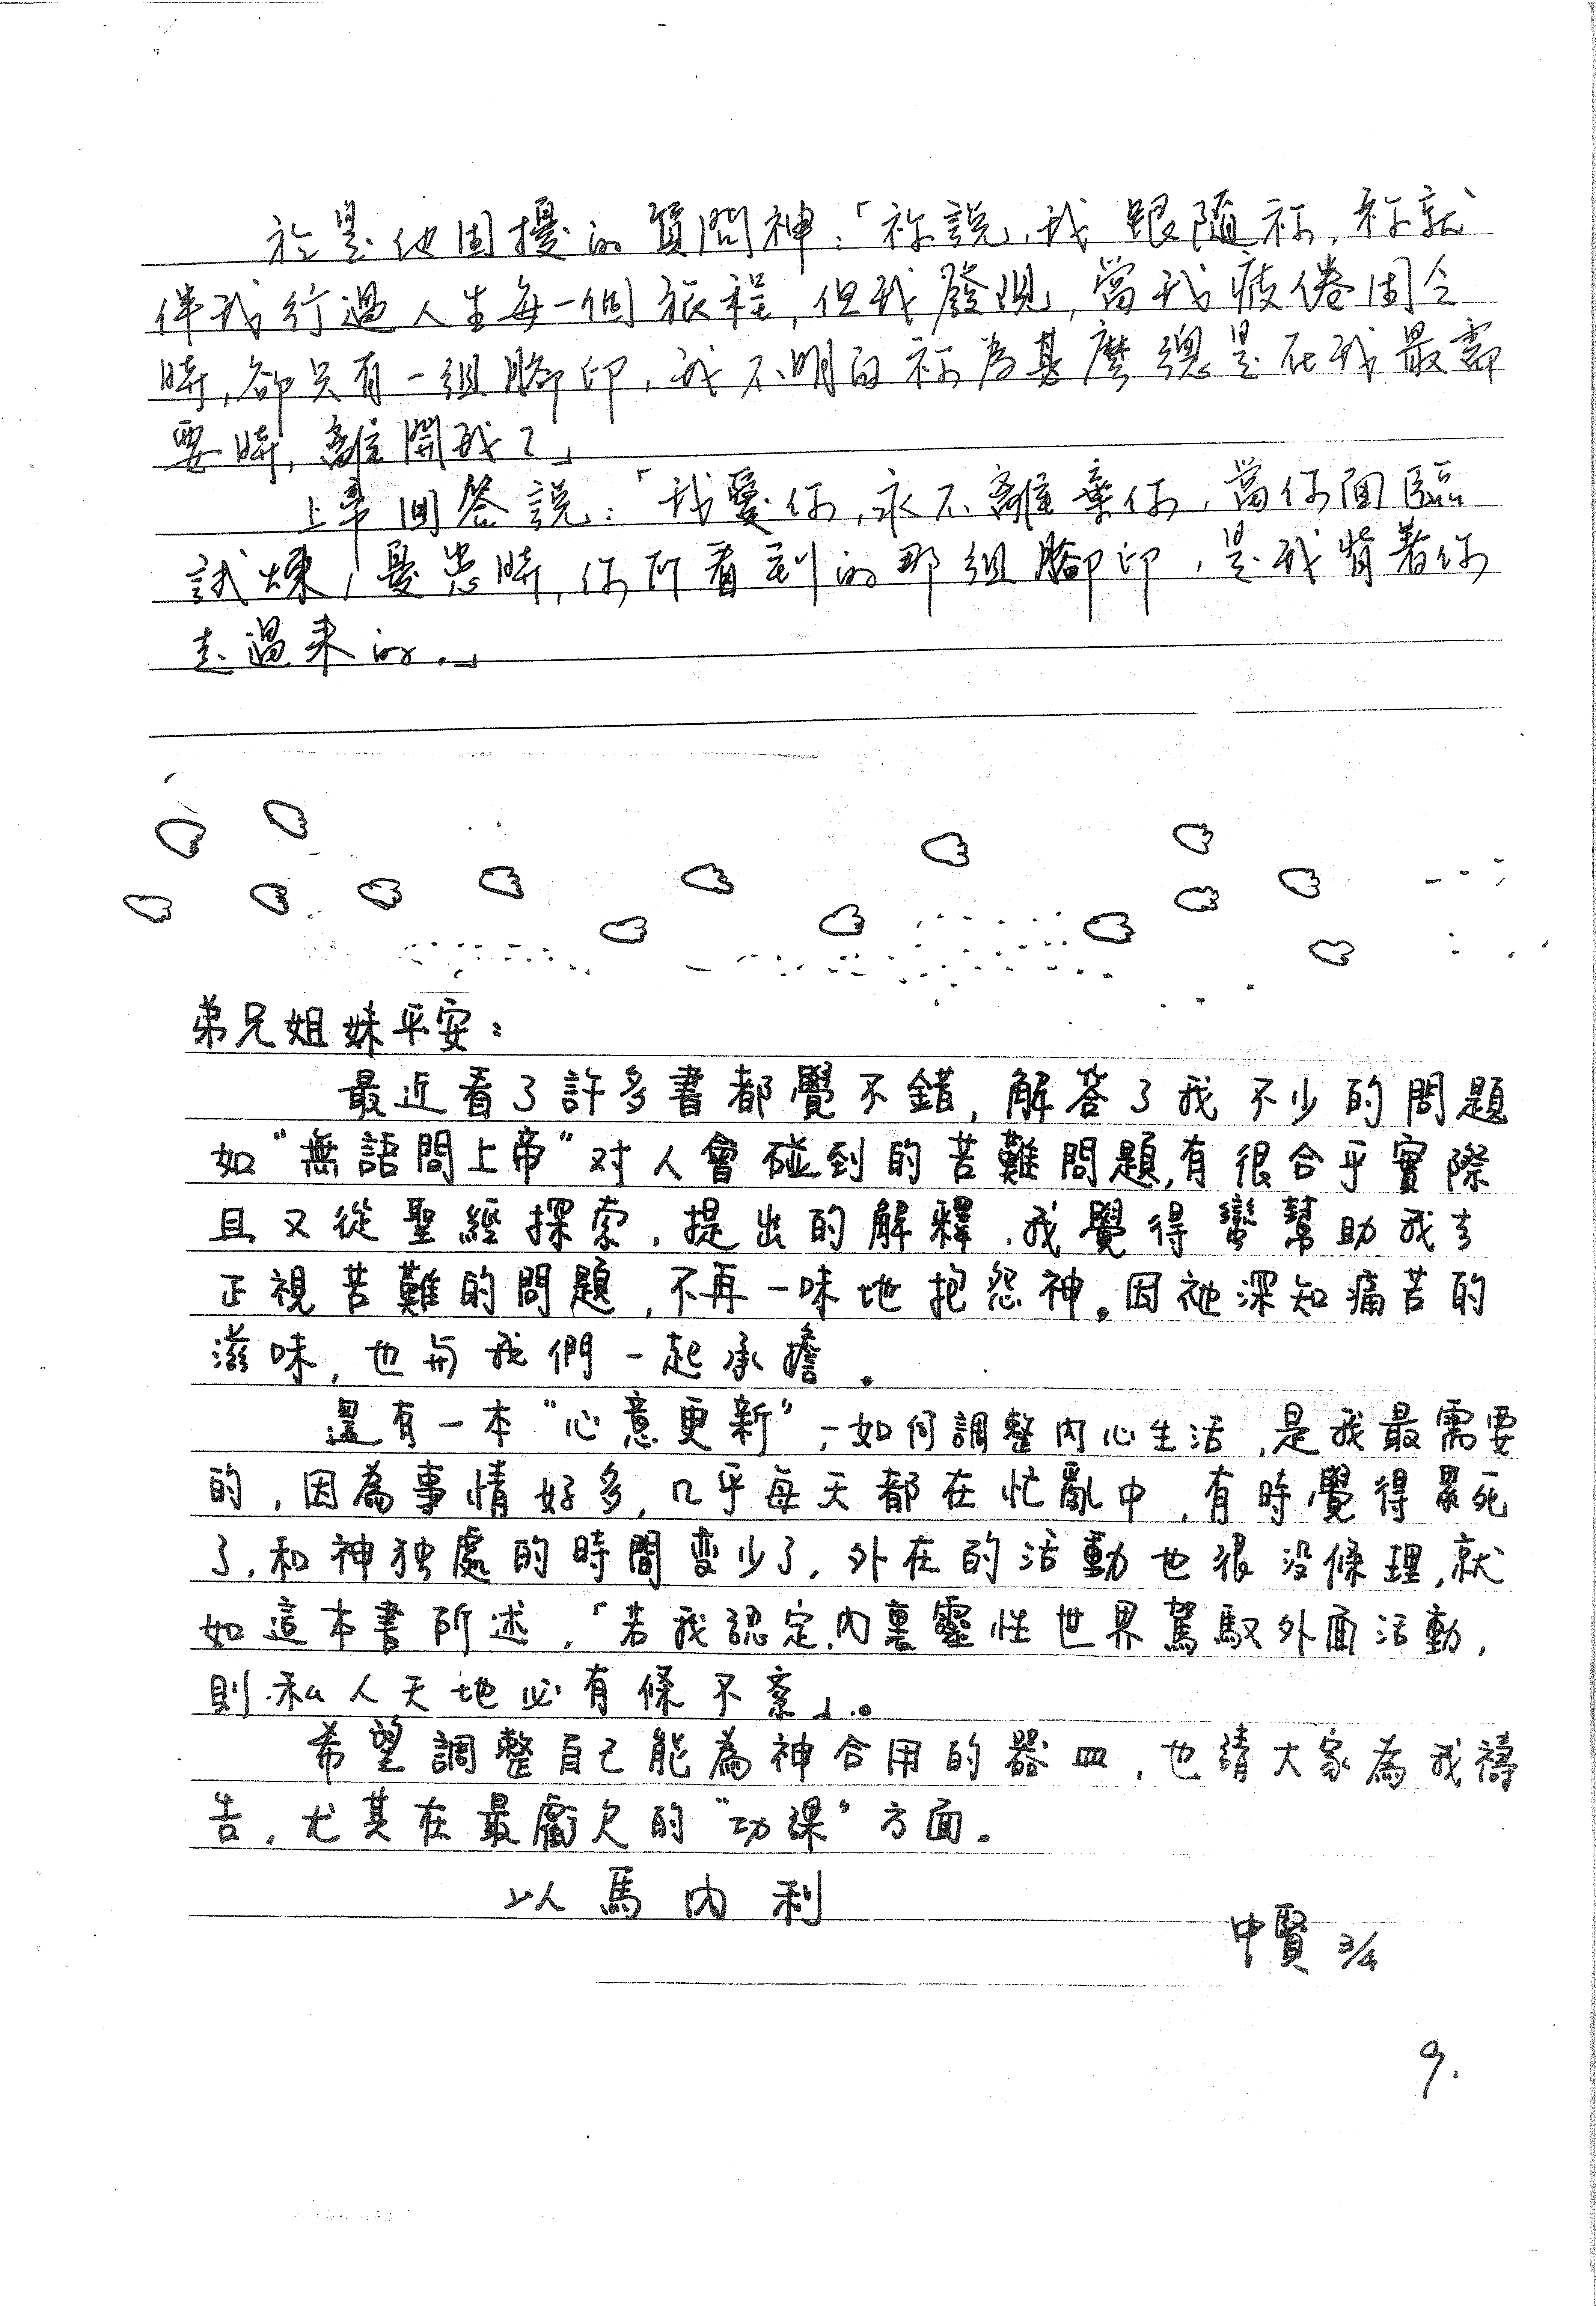 於是他困擾的質問神：「祢說，我跟隨祢，祢就
伴我行過人生每一個旅程，但我發現，當我疲倦困乏
時，卻只有一組腳印，我不明白祢為甚麼總是在我最需
要時，離開我？」
上帝回答說：「我愛你，永不離棄你，當你面臨
試煉，憂患時，你所看到的那組腳印，是我背著你
走過來的。」
弟兄姐妹平安：
最近看了許多書都覺不錯，解答了我不少的問題
如“無語問上帝”对人會碰到的苦難問題，有很合乎實際
且又從聖經探索，提出的解釋，我覺得蠻幫助我去
正視苦難的問題，不再一味地抱怨神。因祂深知痛苦的
滋味，也与我們一起承擔。
還有一本“心意更新”，如何調整內心生活，是我最需要
的，因為事情好多，几乎每天都在忙亂中，有時覺得累死
了，和神独處的時間变少了，外在的活動也很没條理，就
如這本書所述，「若我認定，內裏靈性世界駕馭外面活動，
則私人天地必有條不紊」。
希望調整自己能為神合用的器皿，也請大家為我禱
告，尤其在最虧欠的“功課”方面。
以馬內利
中賢 3/4
9.